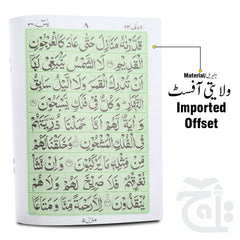 ٩
قَدَّرْنٰهُ مَنَازِلَ حَتّٰى عَادَ كَالْعُرْجُوْنِ
الْقَدِيْمِ لَا الشَّمْسُ يَنْۢبَغِيْ لَهَاۤ
اَنْ تُدْرِكَ الْقَمَرَ وَلَا الَّيْلُ سَابِقُ
النَّهَارِ وَكُلٌّ فِيْ فَلَكٍ يَّسْبَحُوْنَ
وَاٰيَةٌ لَّهُمْ اَنَّا حَمَلْنَا ذُرِّيَّتَهُمْ
فِي الْفُلْكِ الْمَشْحُوْنِ وَخَلَقْنَا لَهُمْ
مِّنْ مِّثْلِهٖ مَا يَرْكَبُوْنَ وَاِنْ نَّشَاْ
نُغْرِقْهُمْ فَلَا صَرِيْخَ لَهُمْ وَلَا هُمْ
يُنْقَذُوْنَ اِلَّا رَحْمَةً مِّنَّا وَمَتَاعًا
منزل ۵
Material
ولایتی آفسٹ
Imported
Offset